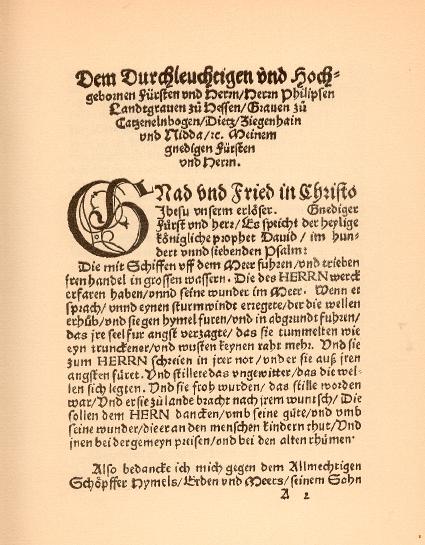 Dem Durchleuchtigen vnd Hoch-
gebornen Fürsten vnd Herrn/Herrn Philipsen
Landtgrauen zů Hessen/Grauen zů
Catzenelnbogen/Dietz/Ziegenhain
vnd Nidda/ꝛc. Meinem
gnedigen Fürsten
vnd Herrn.
GNad vnd Fried in Christo
Jhesu vnserm erlöser. Gnediger
Fürst vnd herr/Es spricht der heylige
königliche prophet Dauid/im hun-
dert vnnd siebenden Psalm:
Die mit Schiffen vff dem Meer fuhren/vnd trieben
jren handel in grossen wassern. Die des HERRN werck
erfaren haben/vnnd seine wunder im Meer. Wenn er
sprach/vnnd eynen sturmwindt erregete/der die wellen
erhüb/vnd sie gen hymel furen/vnd in abgrundt fuhren/
das jre seel fur angst verzagte/das sie tummelten wie
eyn trunckener/vnd wusten keynen raht mehr. Vnd sie
zum HERRN schreien in jrer not/vnd er sie auß jren
angsten füret. Vnd stillete das vngewitter/das die wel-
len sich legten. Vnd sie froh wurden/das stille worden
war/Vnd er sie zu lande bracht nach jrem wuntsch/Die
sollen dem HERN dancken/vmb seine güte/vnd vmb
seine wunder/die er an den menschen kindern thut/Vnd
jnen bei der gemeyn preisen/vnd bei den alten rhümen.
Also bedancke ich mich gegen dem Allmechtigen
Schöpffer Hymels/Erden vnd Meers/seinem Sohn
A 2